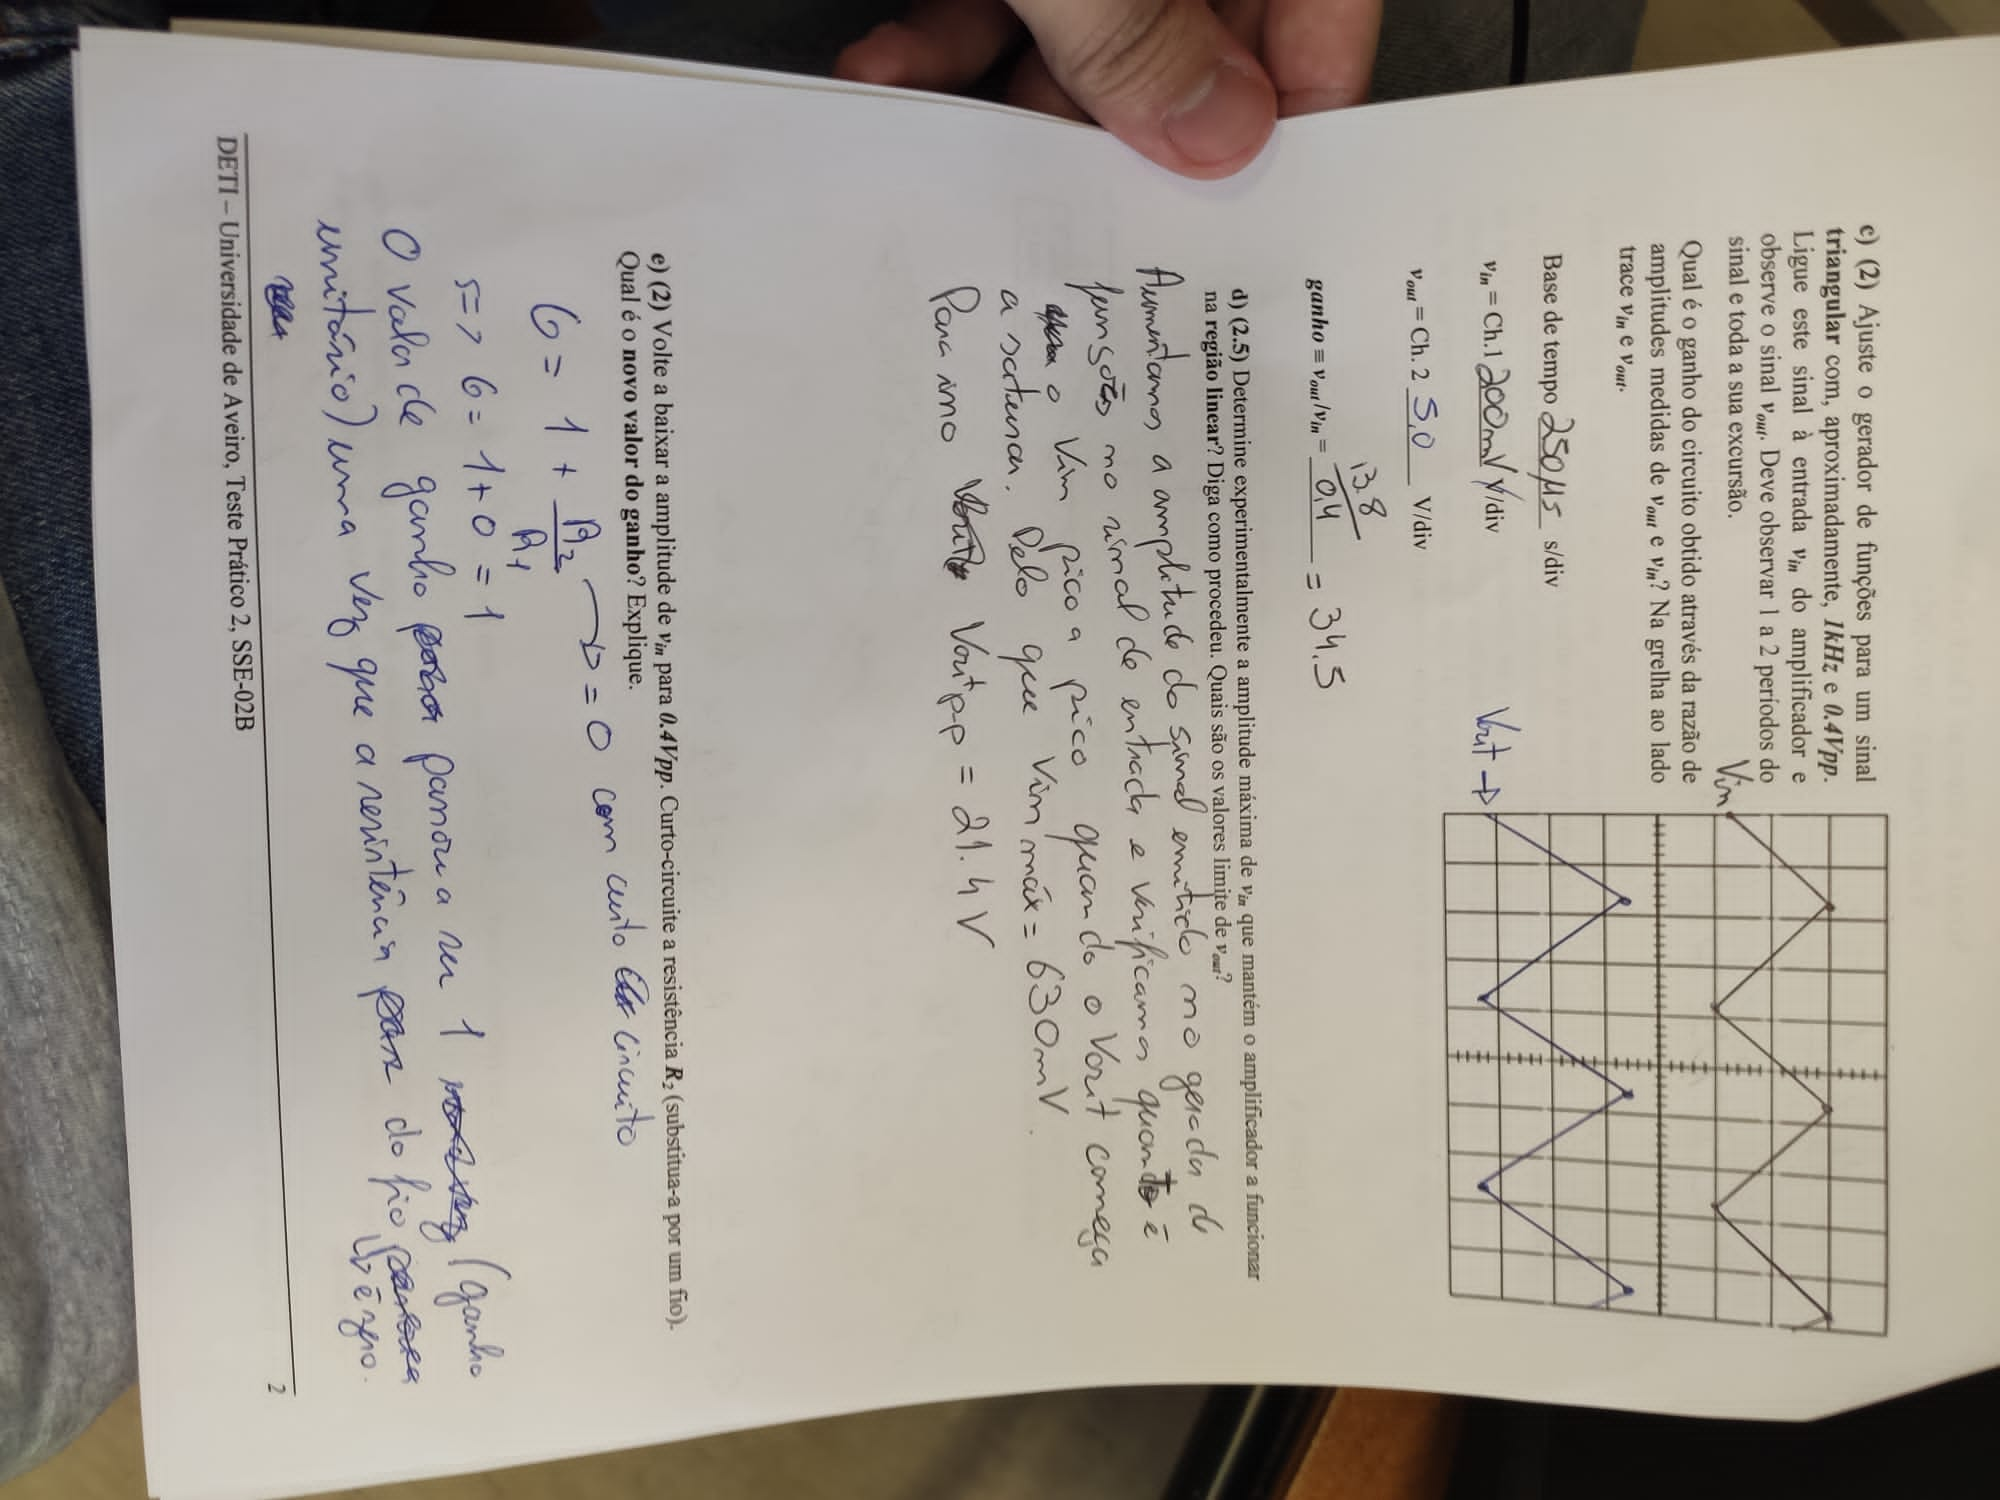 c) (2) Ajuste o gerador de funções para um sinal
triangular com, aproximadamente, 1kHz e 0.4Vpp.
Ligue este sinal à entrada vin do amplificador e
observe o sinal vout. Deve observar 1 a 2 períodos do
sinal e toda a sua excursão.
Vin
Qual é o ganho do circuito obtido através da razão de
amplitudes medidas de vout e vin? Na grelha ao lado
trace vin e vout.
Base de tempo 250µs s/div
vin = Ch.1 200mV V/div
Vout →
vout = Ch. 2 5,0 V/div
ganho ≡ vout/vin = 13.8/0,4 = 34.5
d) (2.5) Determine experimentalmente a amplitude máxima de vin que mantém o amplificador a funcionar
na região linear? Diga como procedeu. Quais são os valores limite de vout?
Aumentamos a amplitude do sinal emitido no gerador d
funções no sinal de entrada e verificamos quanto é
o Vin pico a pico quando o Vout começa
a saturar. Pelo que Vin máx = 630mV.
Para isso Voutpp = 21.4 V
e) (2) Volte a baixar a amplitude de vin para 0.4Vpp. Curto-circuite a resistência R2 (substitua-a por um fio).
Qual é o novo valor do ganho? Explique.
G = 1 + R2/R1 → = 0 com curto circuito
s=> G = 1+0 = 1
O valor de ganho passou a ser 1 (ganho
unitário) uma vez que a resistência do fio é zero.
DETI – Universidade de Aveiro, Teste Prático 2, SSE-02B
2